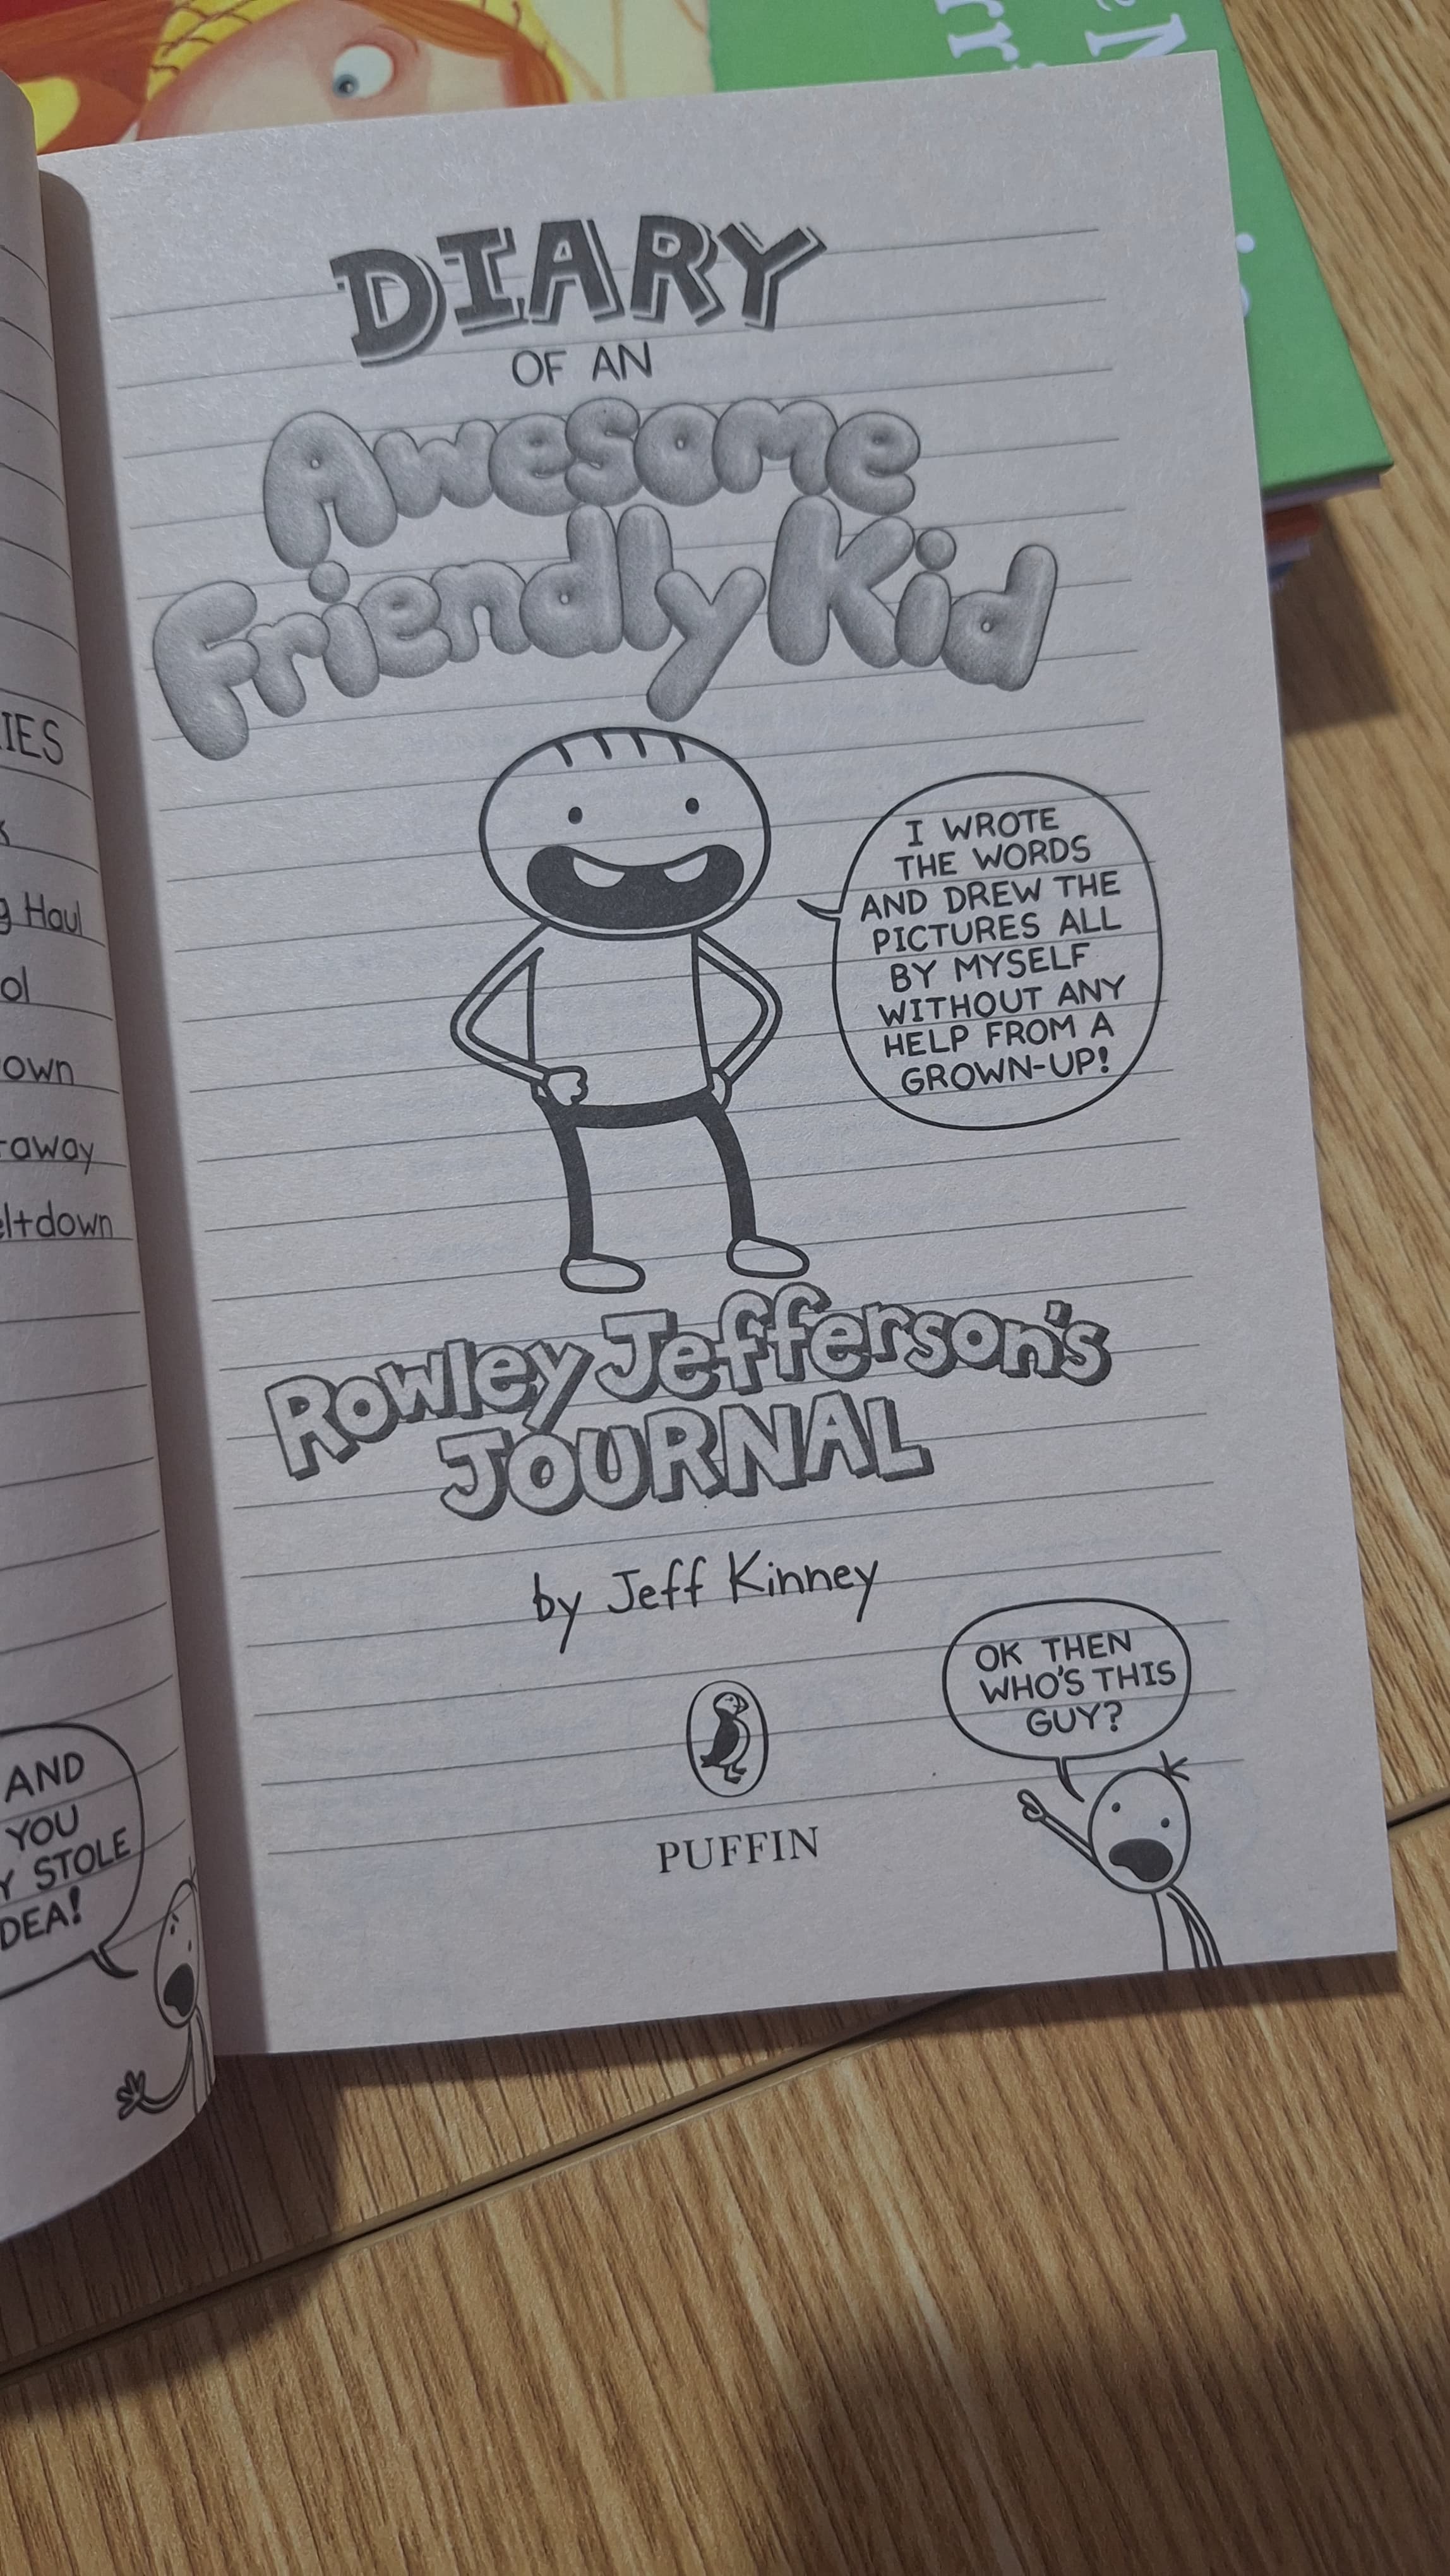 IES
Haul
own
away
AND
YOU
STOLE
DIARY
OF AN
Awesome
Friendly Kid
I WROTE
THE WORDS
AND DREW THE
PICTURES ALL
BY MYSELF
WITHOUT ANY
HELP FROM A
GROWN-UP!
Rowley Jefferson's
JOURNAL
by Jeff Kinney
OK THEN
WHO'S THIS
GUY?
PUFFIN